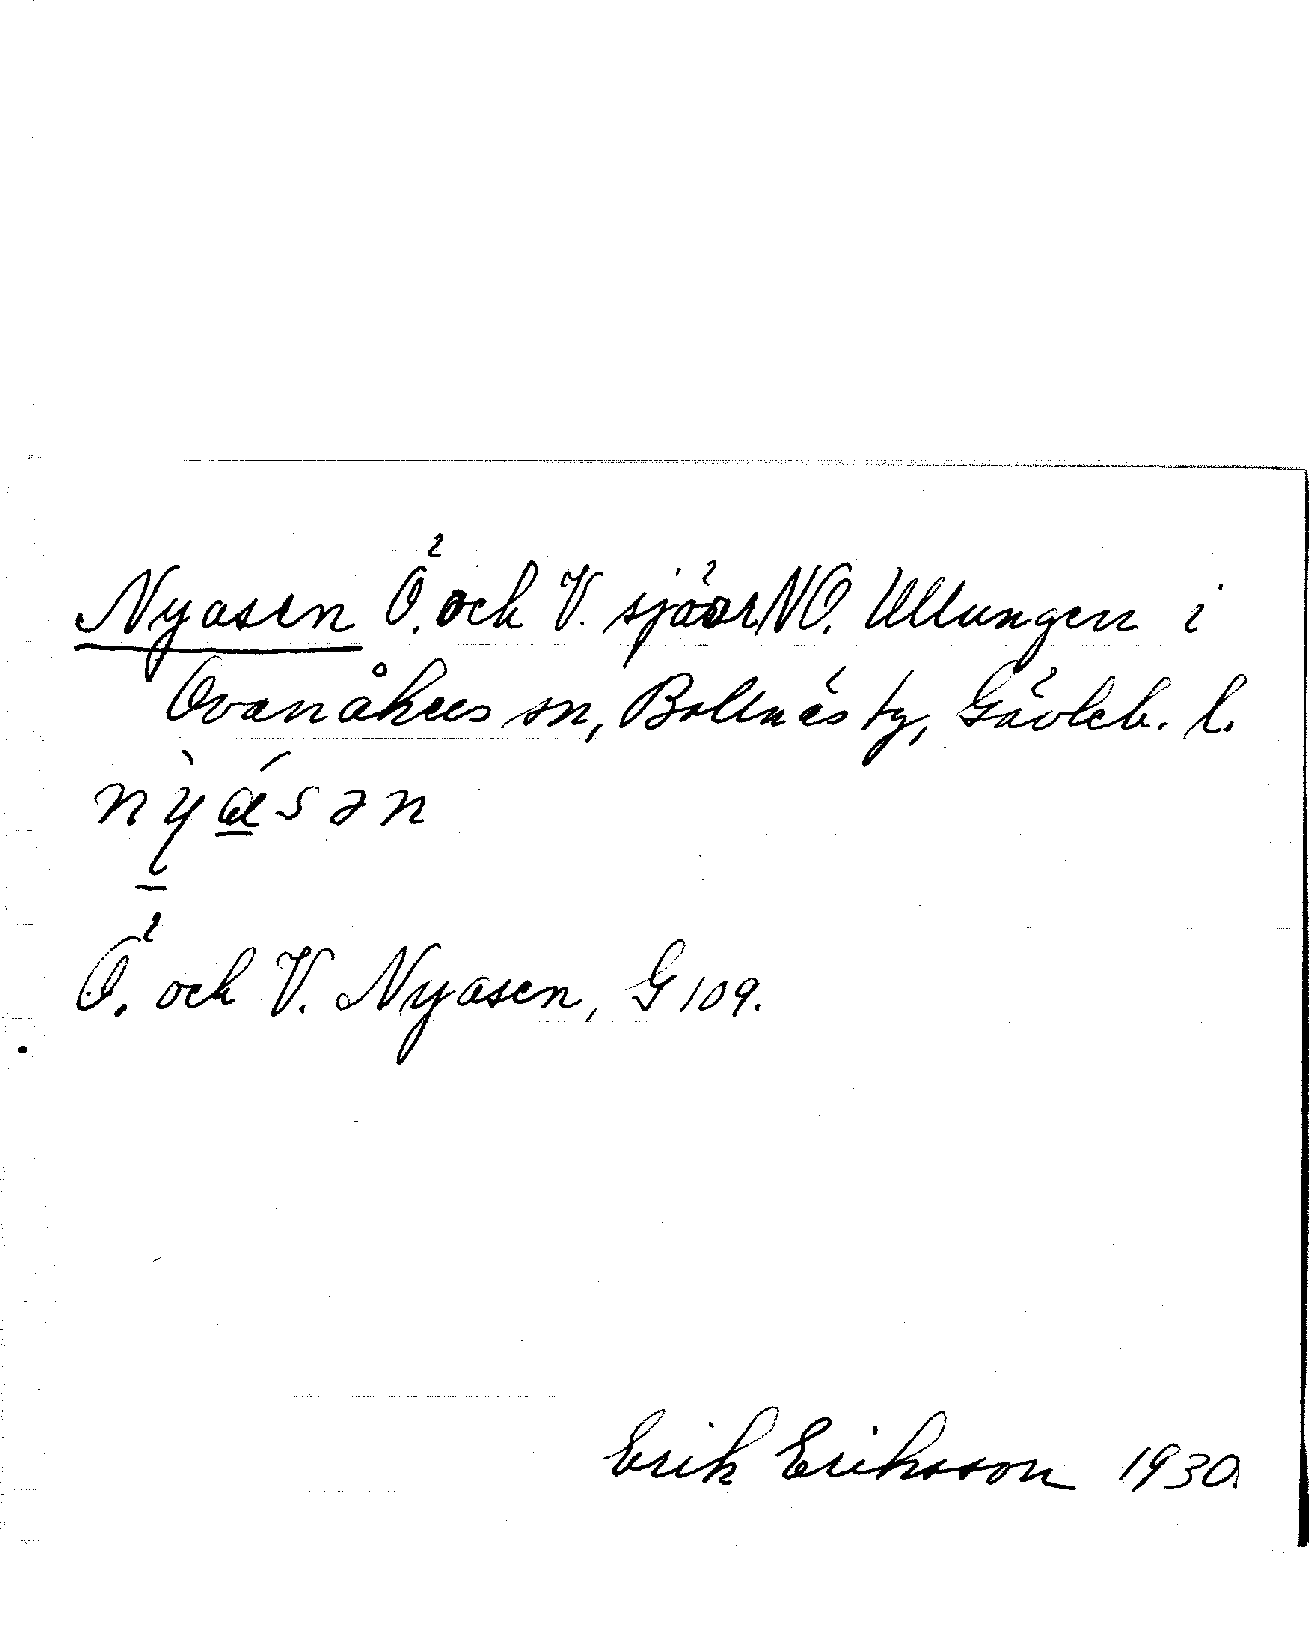 Nyasen Ö. och V. sjöar NO. Ullungen i
Ovanåkers sn, Bollnäs tg, Gävleb. l.
nỳ̱á̱sən
Ö. och V. Nyasen, G 109.
Erik Eriksson 1930.